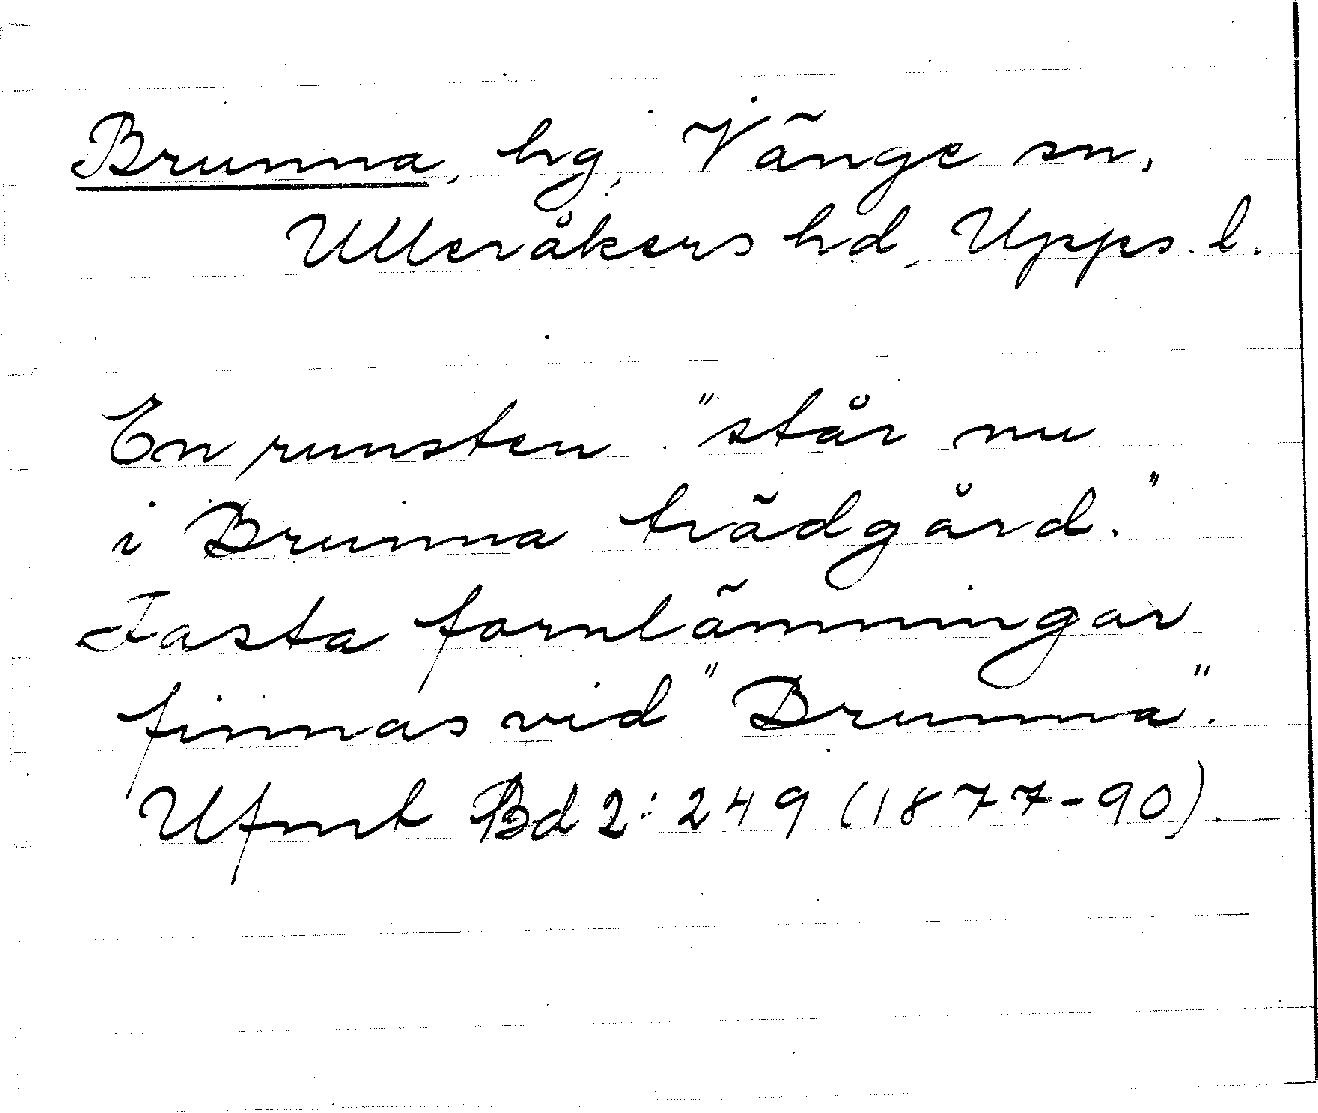 Brunna, hg, Vänge sn,
Ulleråkers hd, Upps. l.
En runsten "står nu
i Brunna trädgård."
Fasta fornlämningar
finnas vid "Brunna".
Ufmt Bd 2: 249 (1877-90).